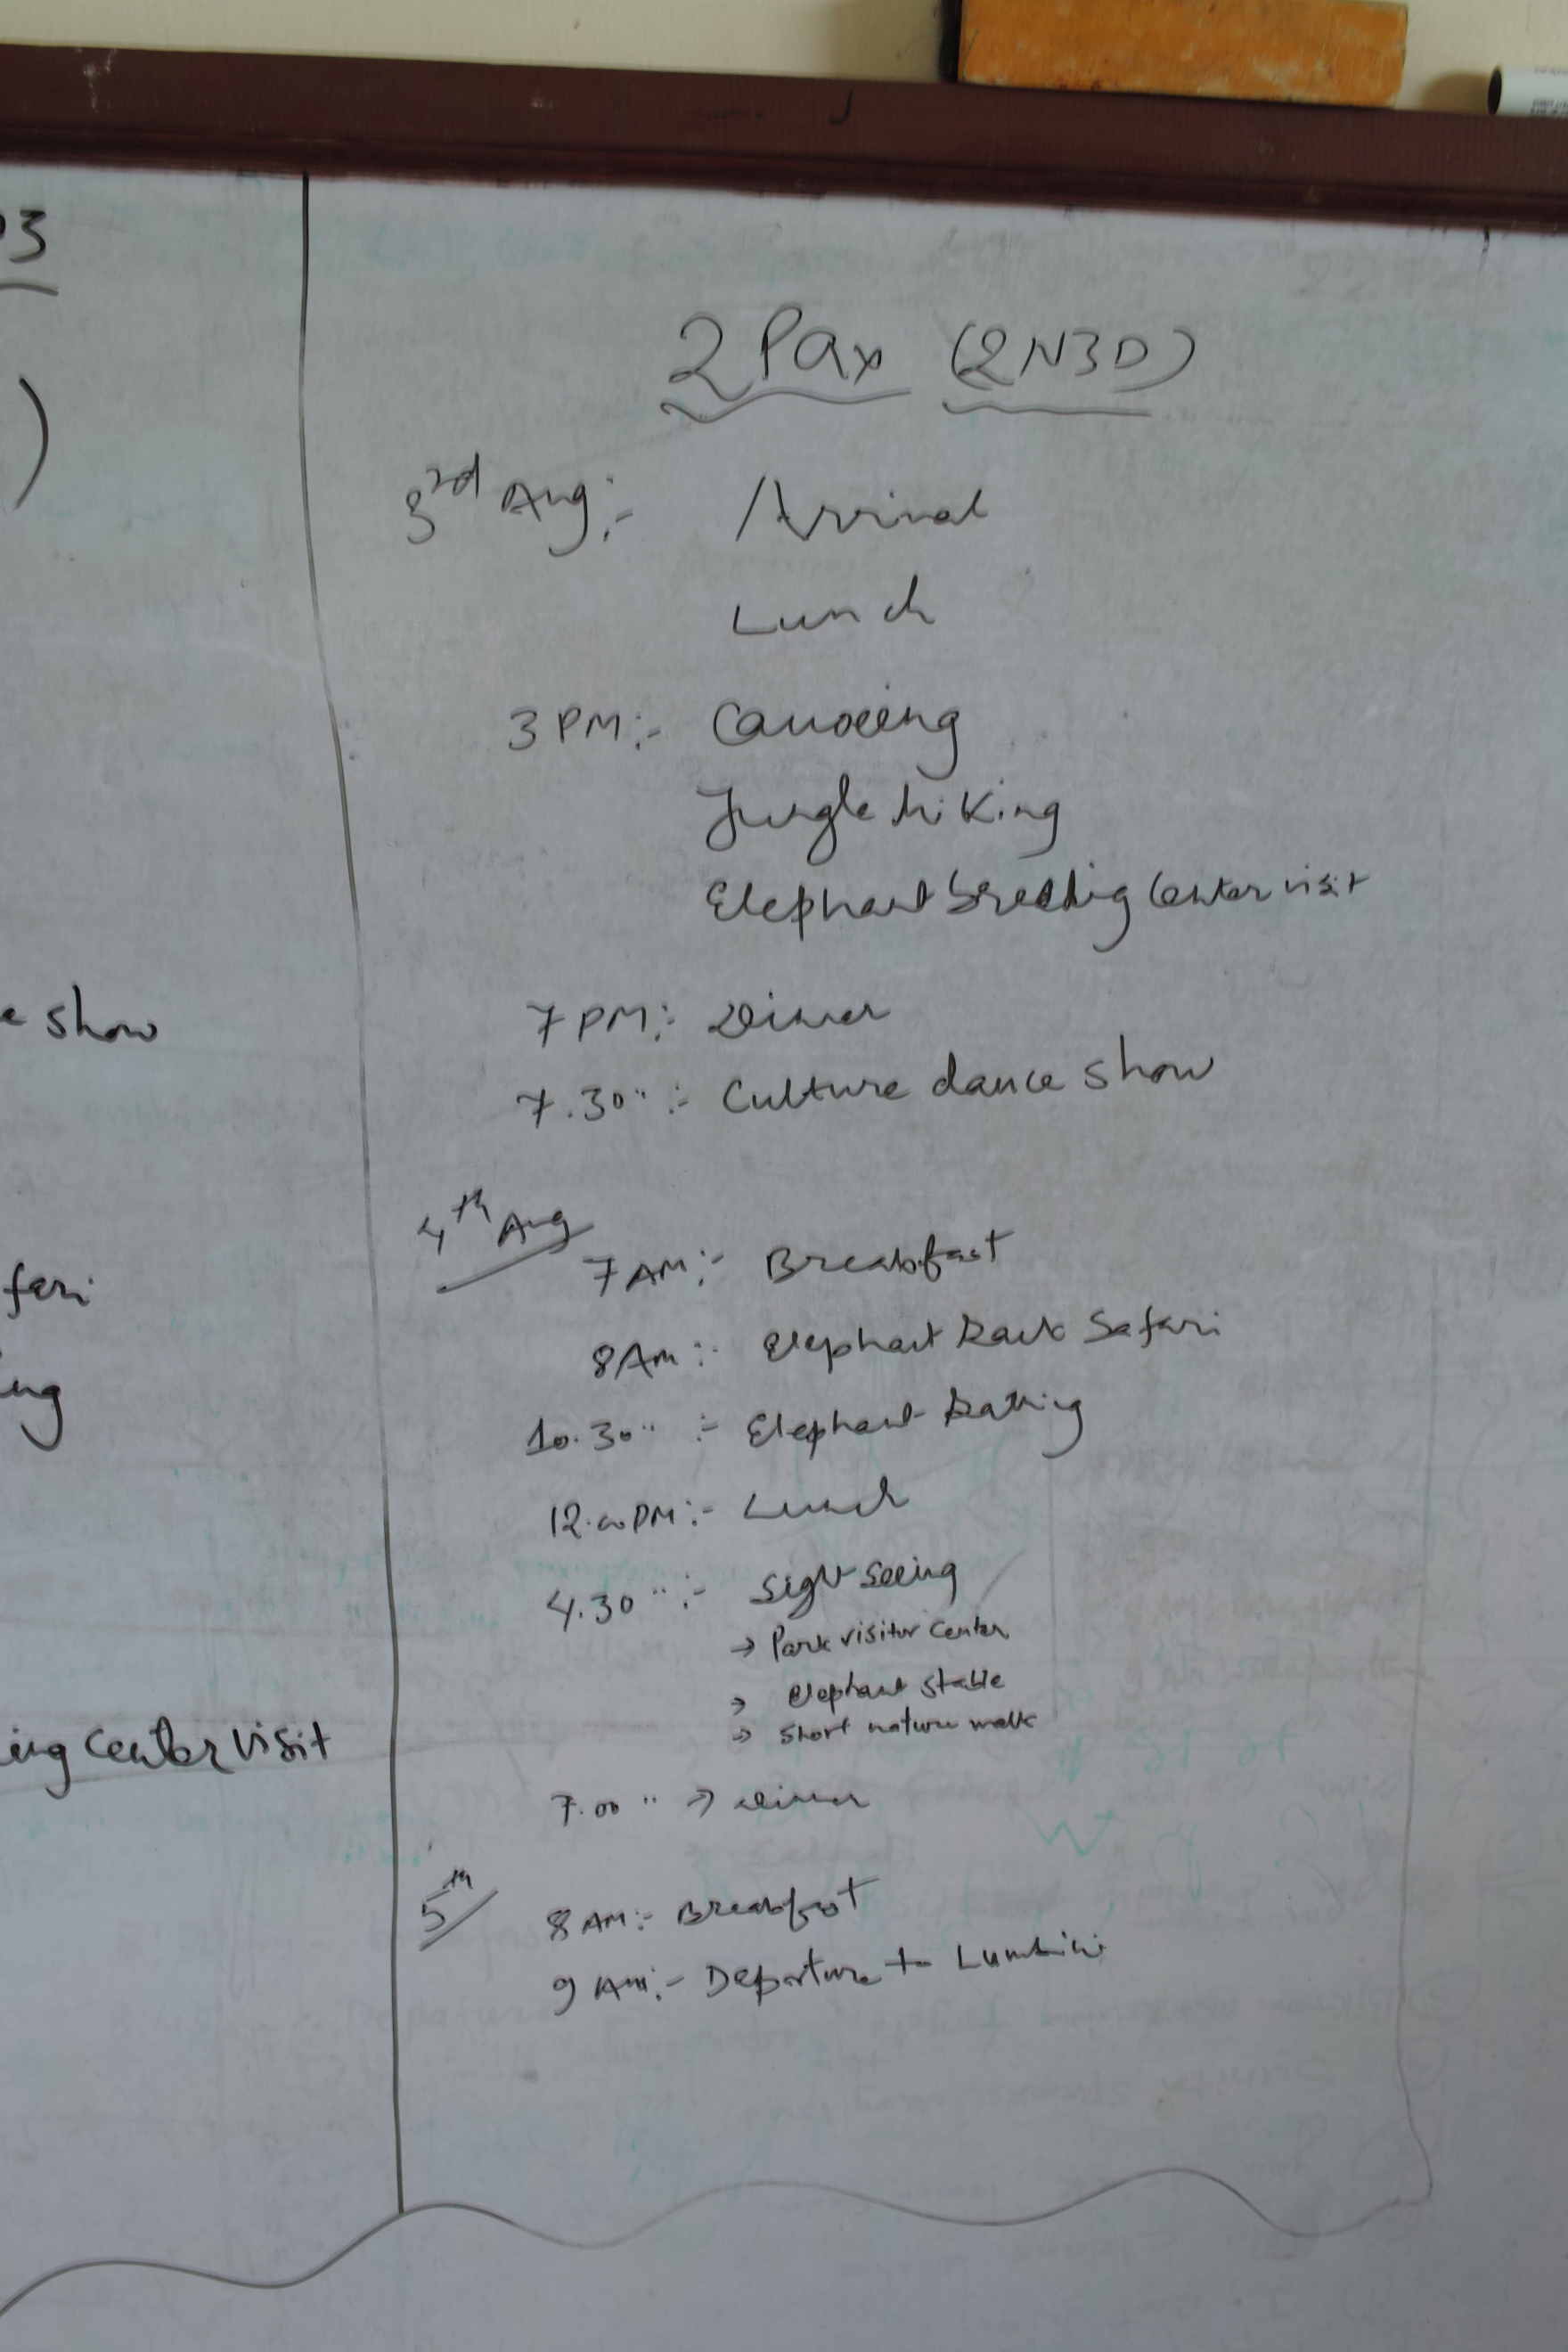 03
)
e show
fari
ing
ing center visit
2 Pax (2N3D)
3rd Aug:- Arrival
Lunch
3 PM:- Canoeing
Jungle hiking
Elephant breeding Center visit
7 PM:- Dinner
7.30 " :- Culture dance show
4th Aug
7 AM:- Breakfast
8 AM:- Elephant Back Safari
10.30 " :- Elephant Bathing
12.00 PM:- Lunch
4.30 " :- Sight Seeing
→ Park visitor Center
→ Elephant stable
→ Short nature walk
7.00 " → Dinner
5th
8 AM:- Breakfast
9 AM:- Departure to Lumbini